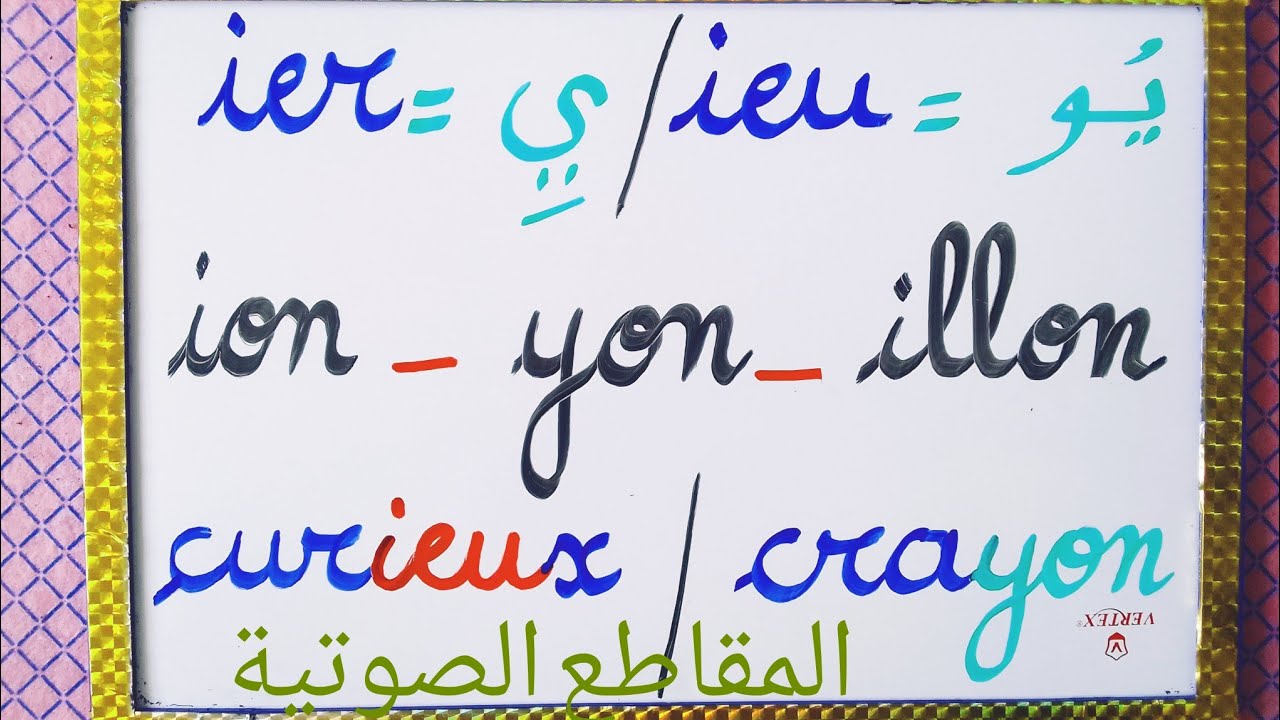 ier = يِي / ieu = يُو
ion - yon - illon
curieux / crayon
VERTEX®
المقاطع الصوتية